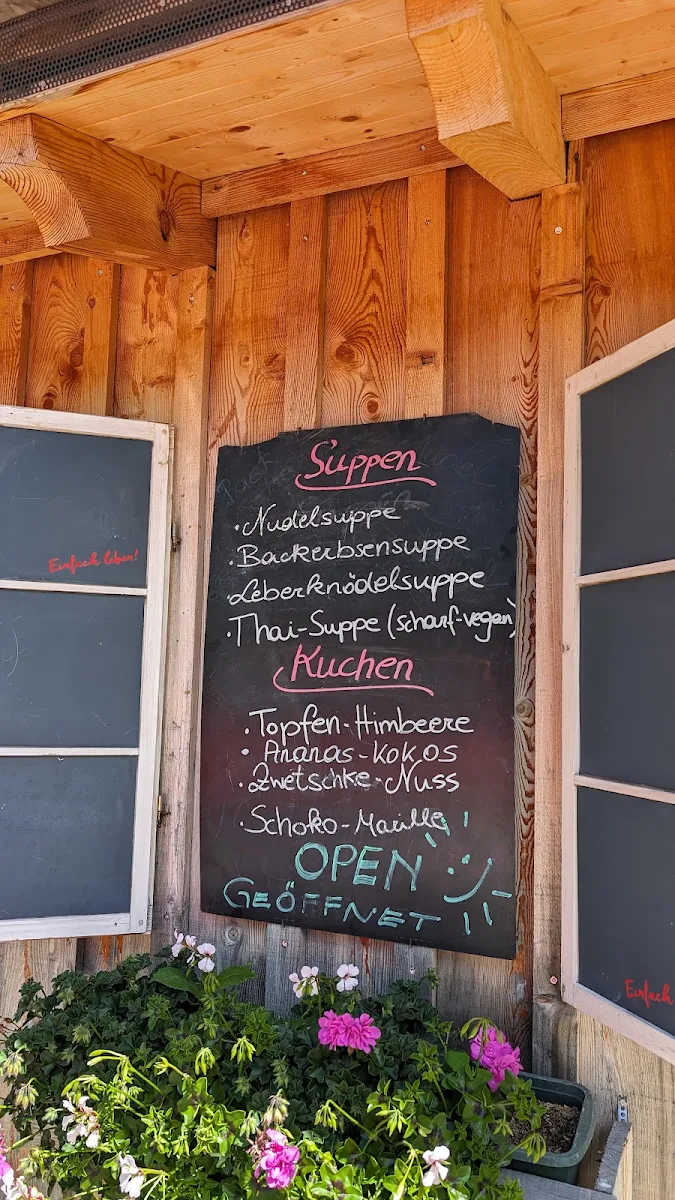 Suppen
· Nudelsuppe
· Backerbsensuppe
· Leberknödelsuppe
· Thai-Suppe (scharf-vegan)
Kuchen
· Topfen-Himbeere
· Ananas-Kokos
· Zwetschke-Nuss
· Schoko-Marille
OPEN
GEÖFFNET
Einfach leben!
Einfach